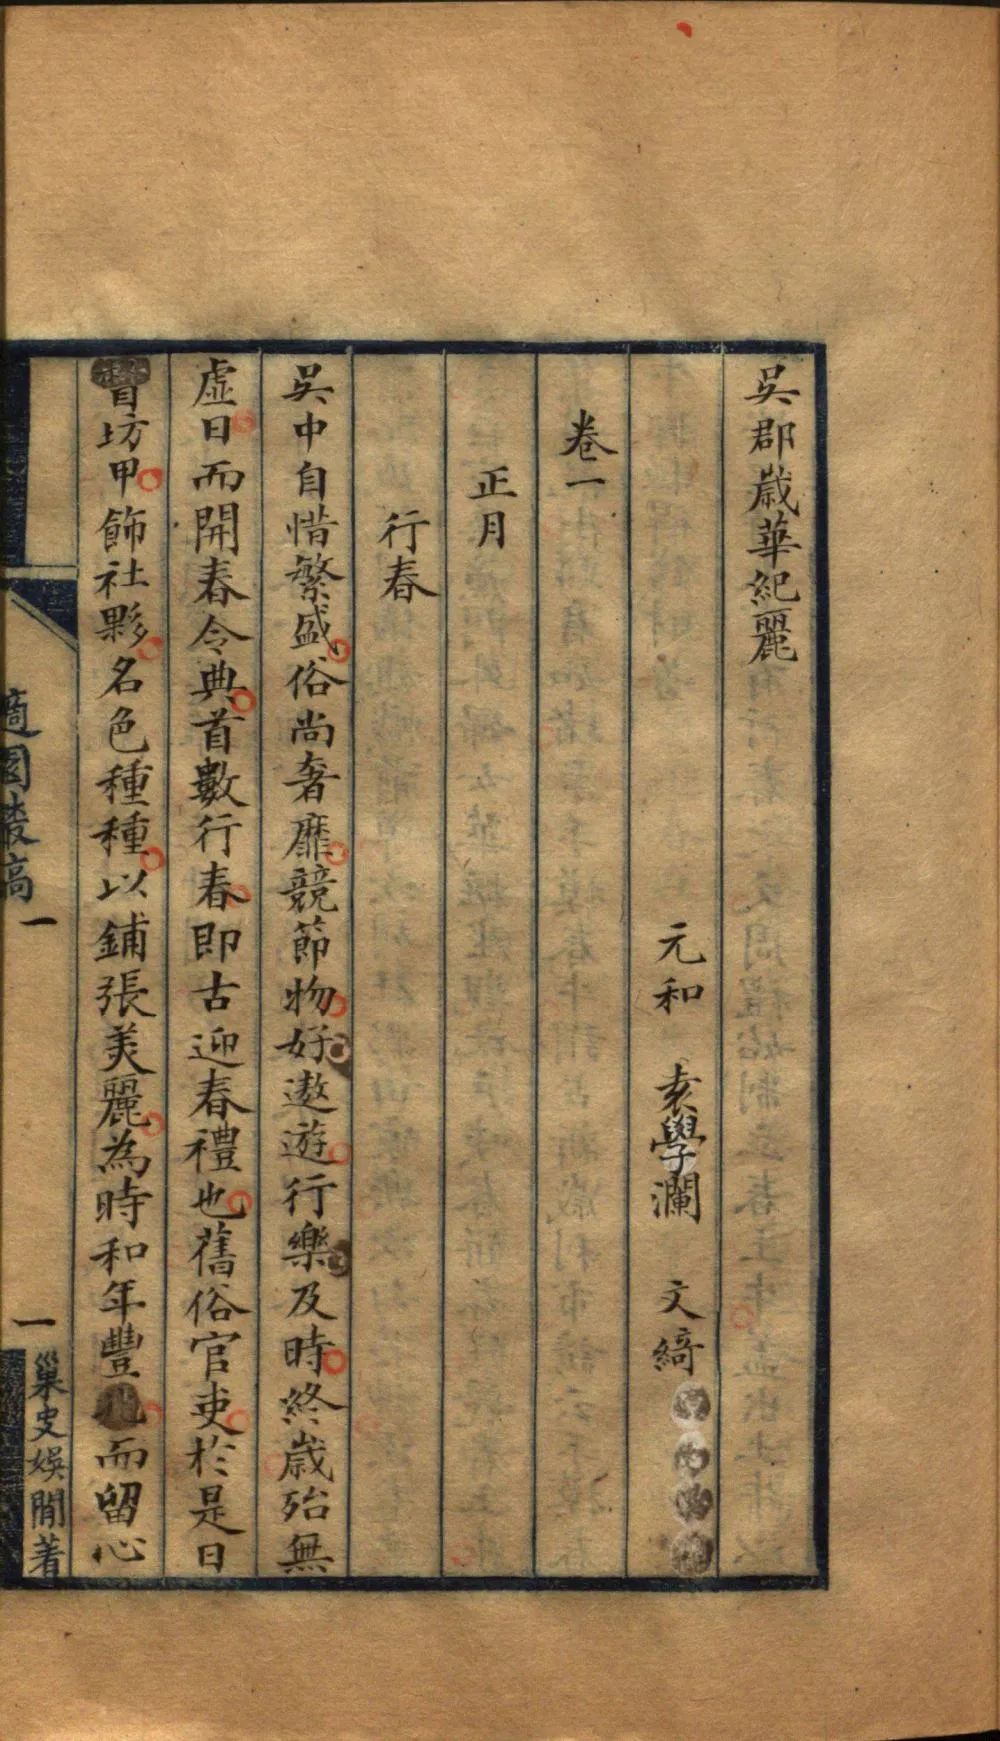 吳郡歲華紀麗
元和 袁學瀾 文綺
卷一
正月
行春
吳中自惜繁盛俗尚奢靡競節物好遨遊行樂及時終歲殆無
虛日而開春令典首數行春即古迎春禮也舊俗官吏於是日
督坊甲飾社夥名色種種以鋪張美麗為時和年豐而留心
適園叢稿
一
一
巢史娛閒著